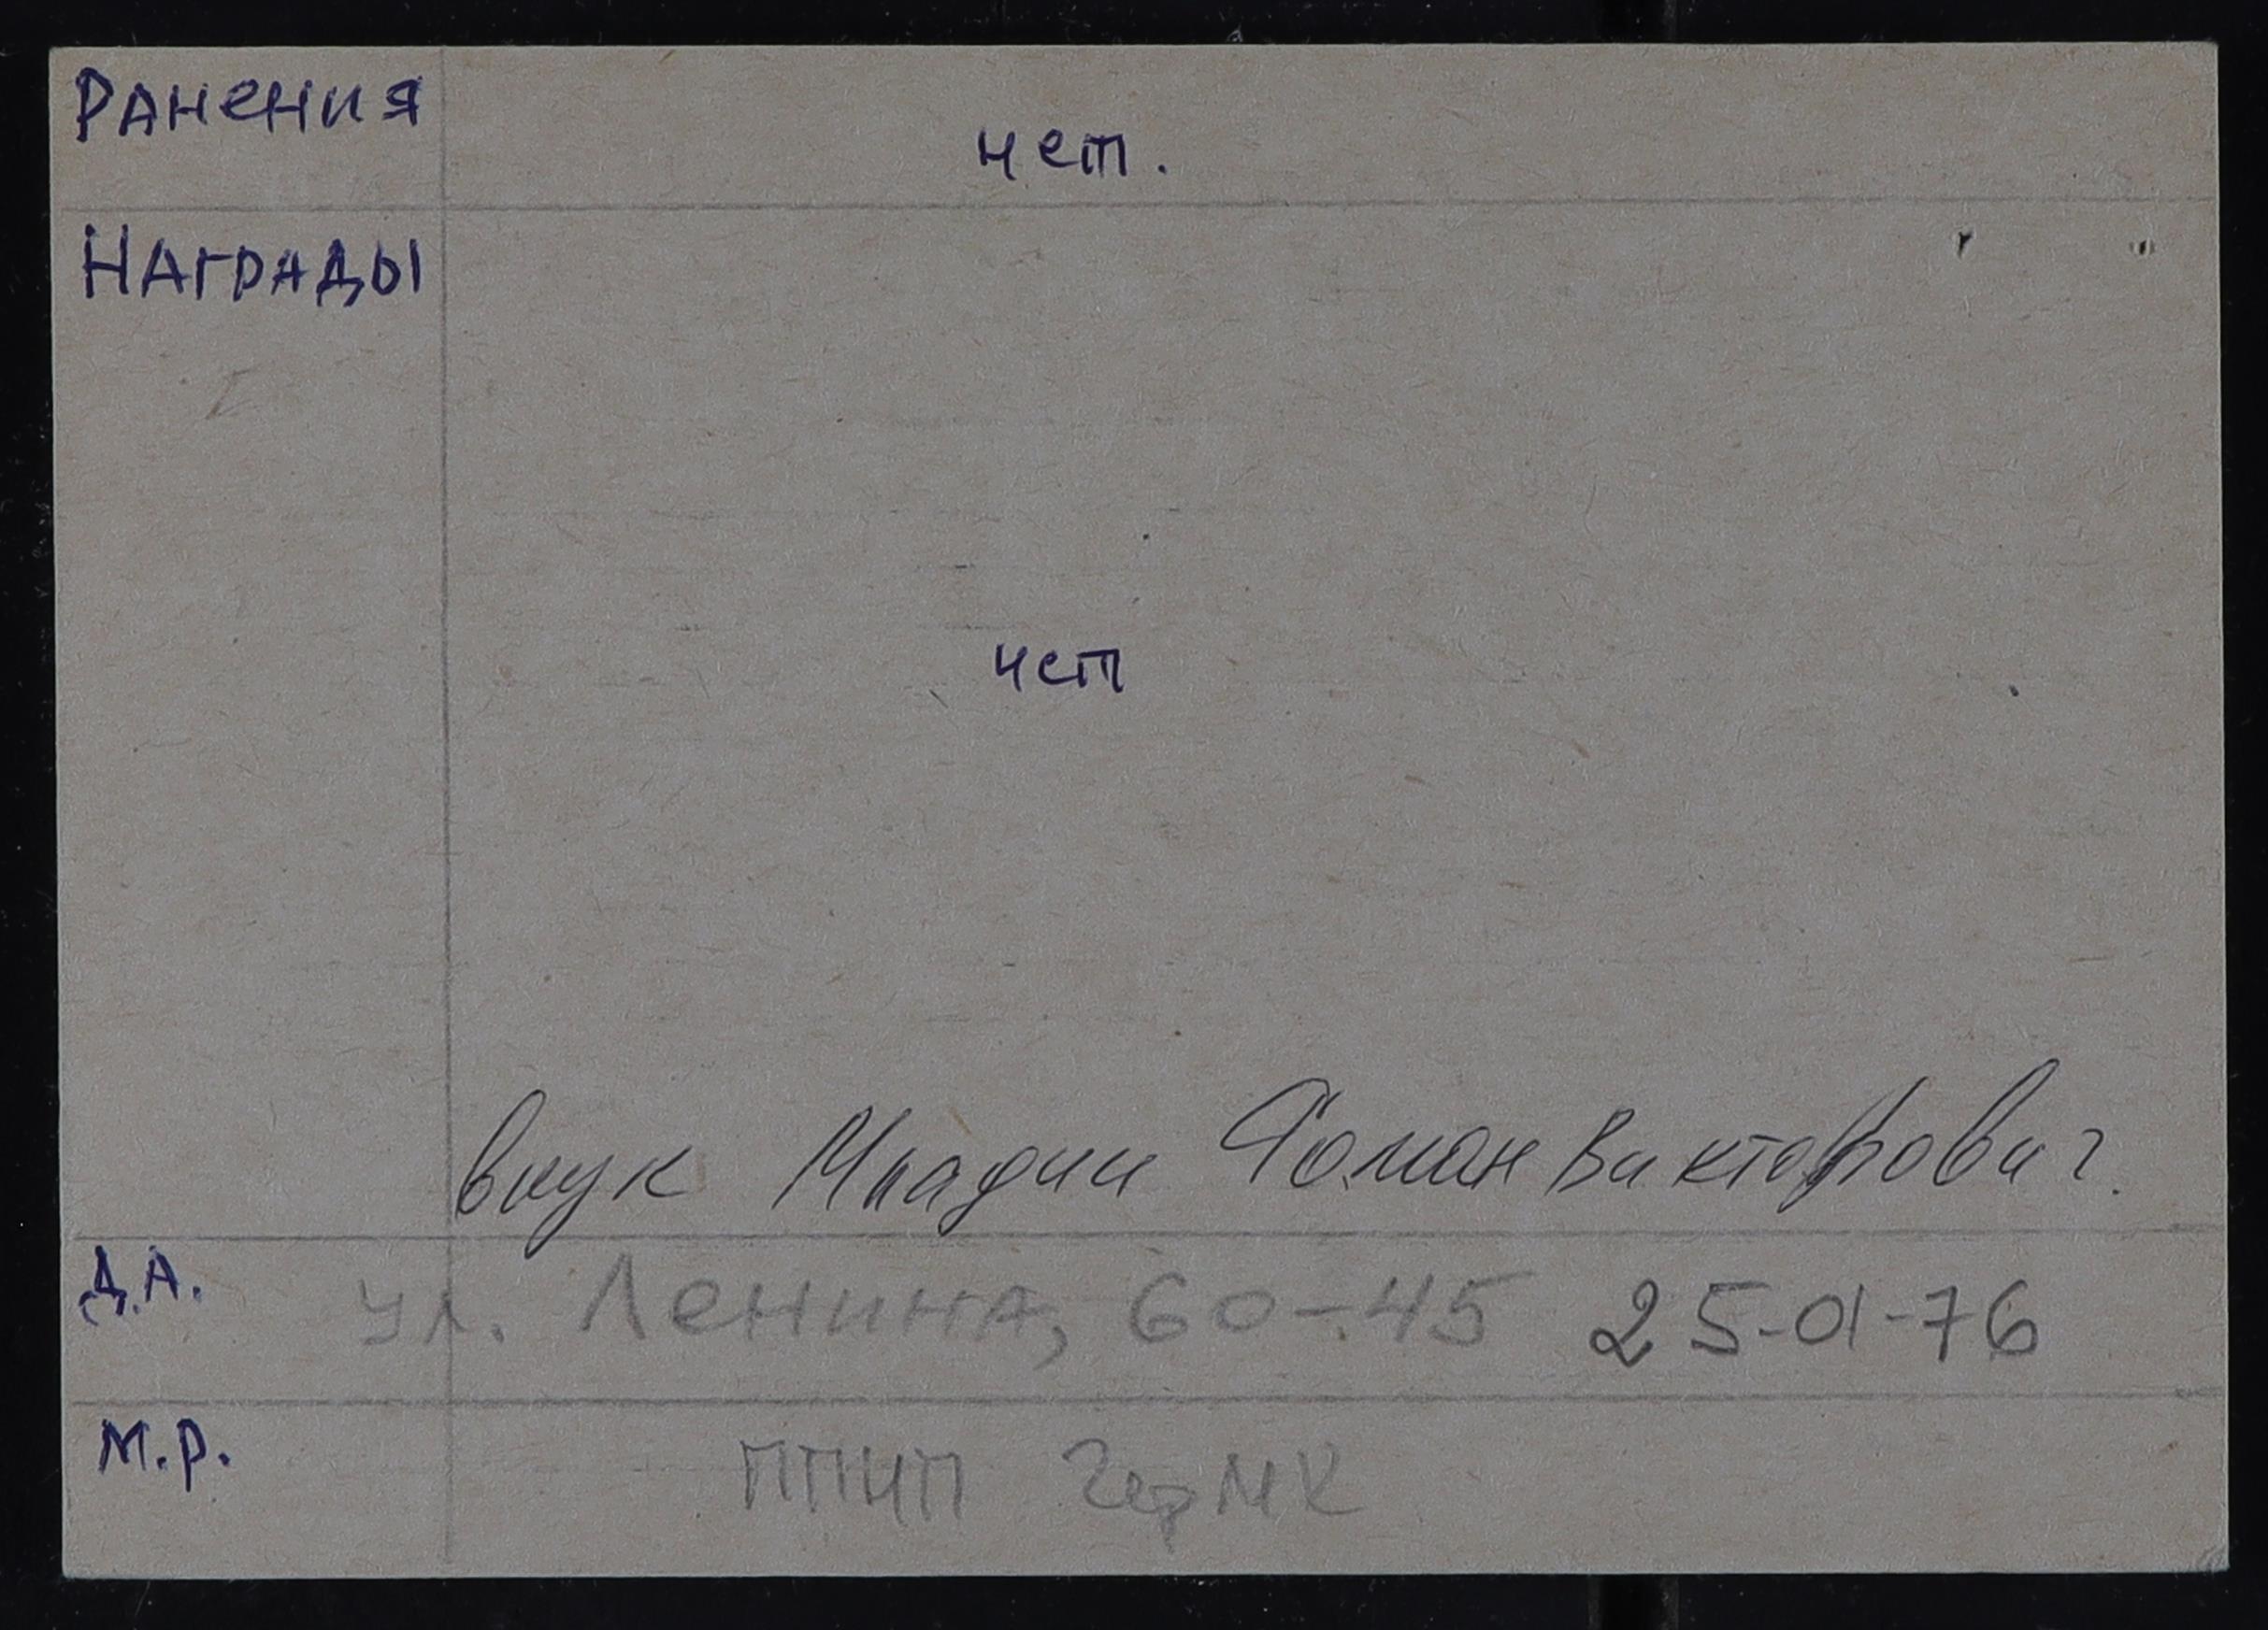 Ранения нет.
Награды
нет
внук Младин Роман Викторович.
Д.А. ул. Ленина, 60-45 25-01-76
М.Р. ППЧП ЧерМК